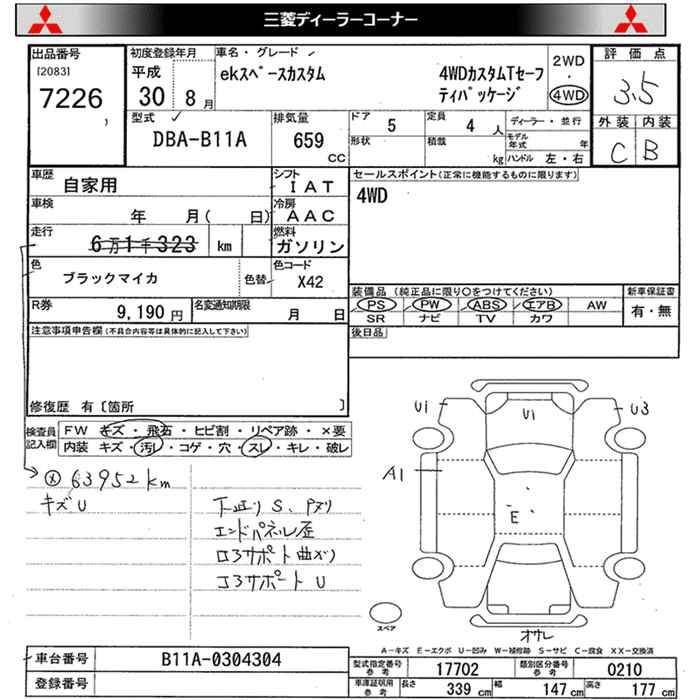 三菱ディーラーコーナー
出品番号 [2083] 7226
初度登録年月 平成 30 8月
車名・グレード
ekスペースカスタム 4WDカスタムTセーフ
ティパッケージ
2WD・4WD
評価点 3.5
外装 内装
C B
型式 DBA-B11A
排気量 659 CC
ドア 5
定員 4 人
ディーラー・並行
形状
積載 kg
モデル年式 年
ハンドル 左・右
車歴 自家用
シフト IAT
セールスポイント(正常に機能するものに限ります)
4WD
車検 年 月( 日)
冷房 AAC
走行 6万1千323 km
燃料 ガソリン
色 ブラックマイカ 色替
色コード X42
装備品(純正品に限り○をつけてください)
PS PW ABS エアB AW
SR ナビ TV カワ
新車保証書
有・無
R券 9,190円
名変通知期限 月 日
後日品
注意事項申告欄(不具合内容等は具体的に記入して下さい)
修復歴 有〔箇所 〕
検査員記入欄
FW キズ・飛石・ヒビ割・リペア跡・×要
内装 キズ・汚レ・コゲ・穴・スレ・キレ・破レ
63952km
キズU
下廻りS、Pヌリ
エンドパネル歪
ロアサポート曲ガリ
コアサポートU
U1
U1
U3
A1
E
オサレ
スペア
A-キズ E-エクボ U-凹み W-補修跡 S-サビ C-腐食 XX-交換済
車台番号 B11A-0304304
登録番号
型式指定番号参考 17702
類別区分番号参考 0210
車庫証明用参考 長さ 339cm 幅 147cm 高さ 177cm